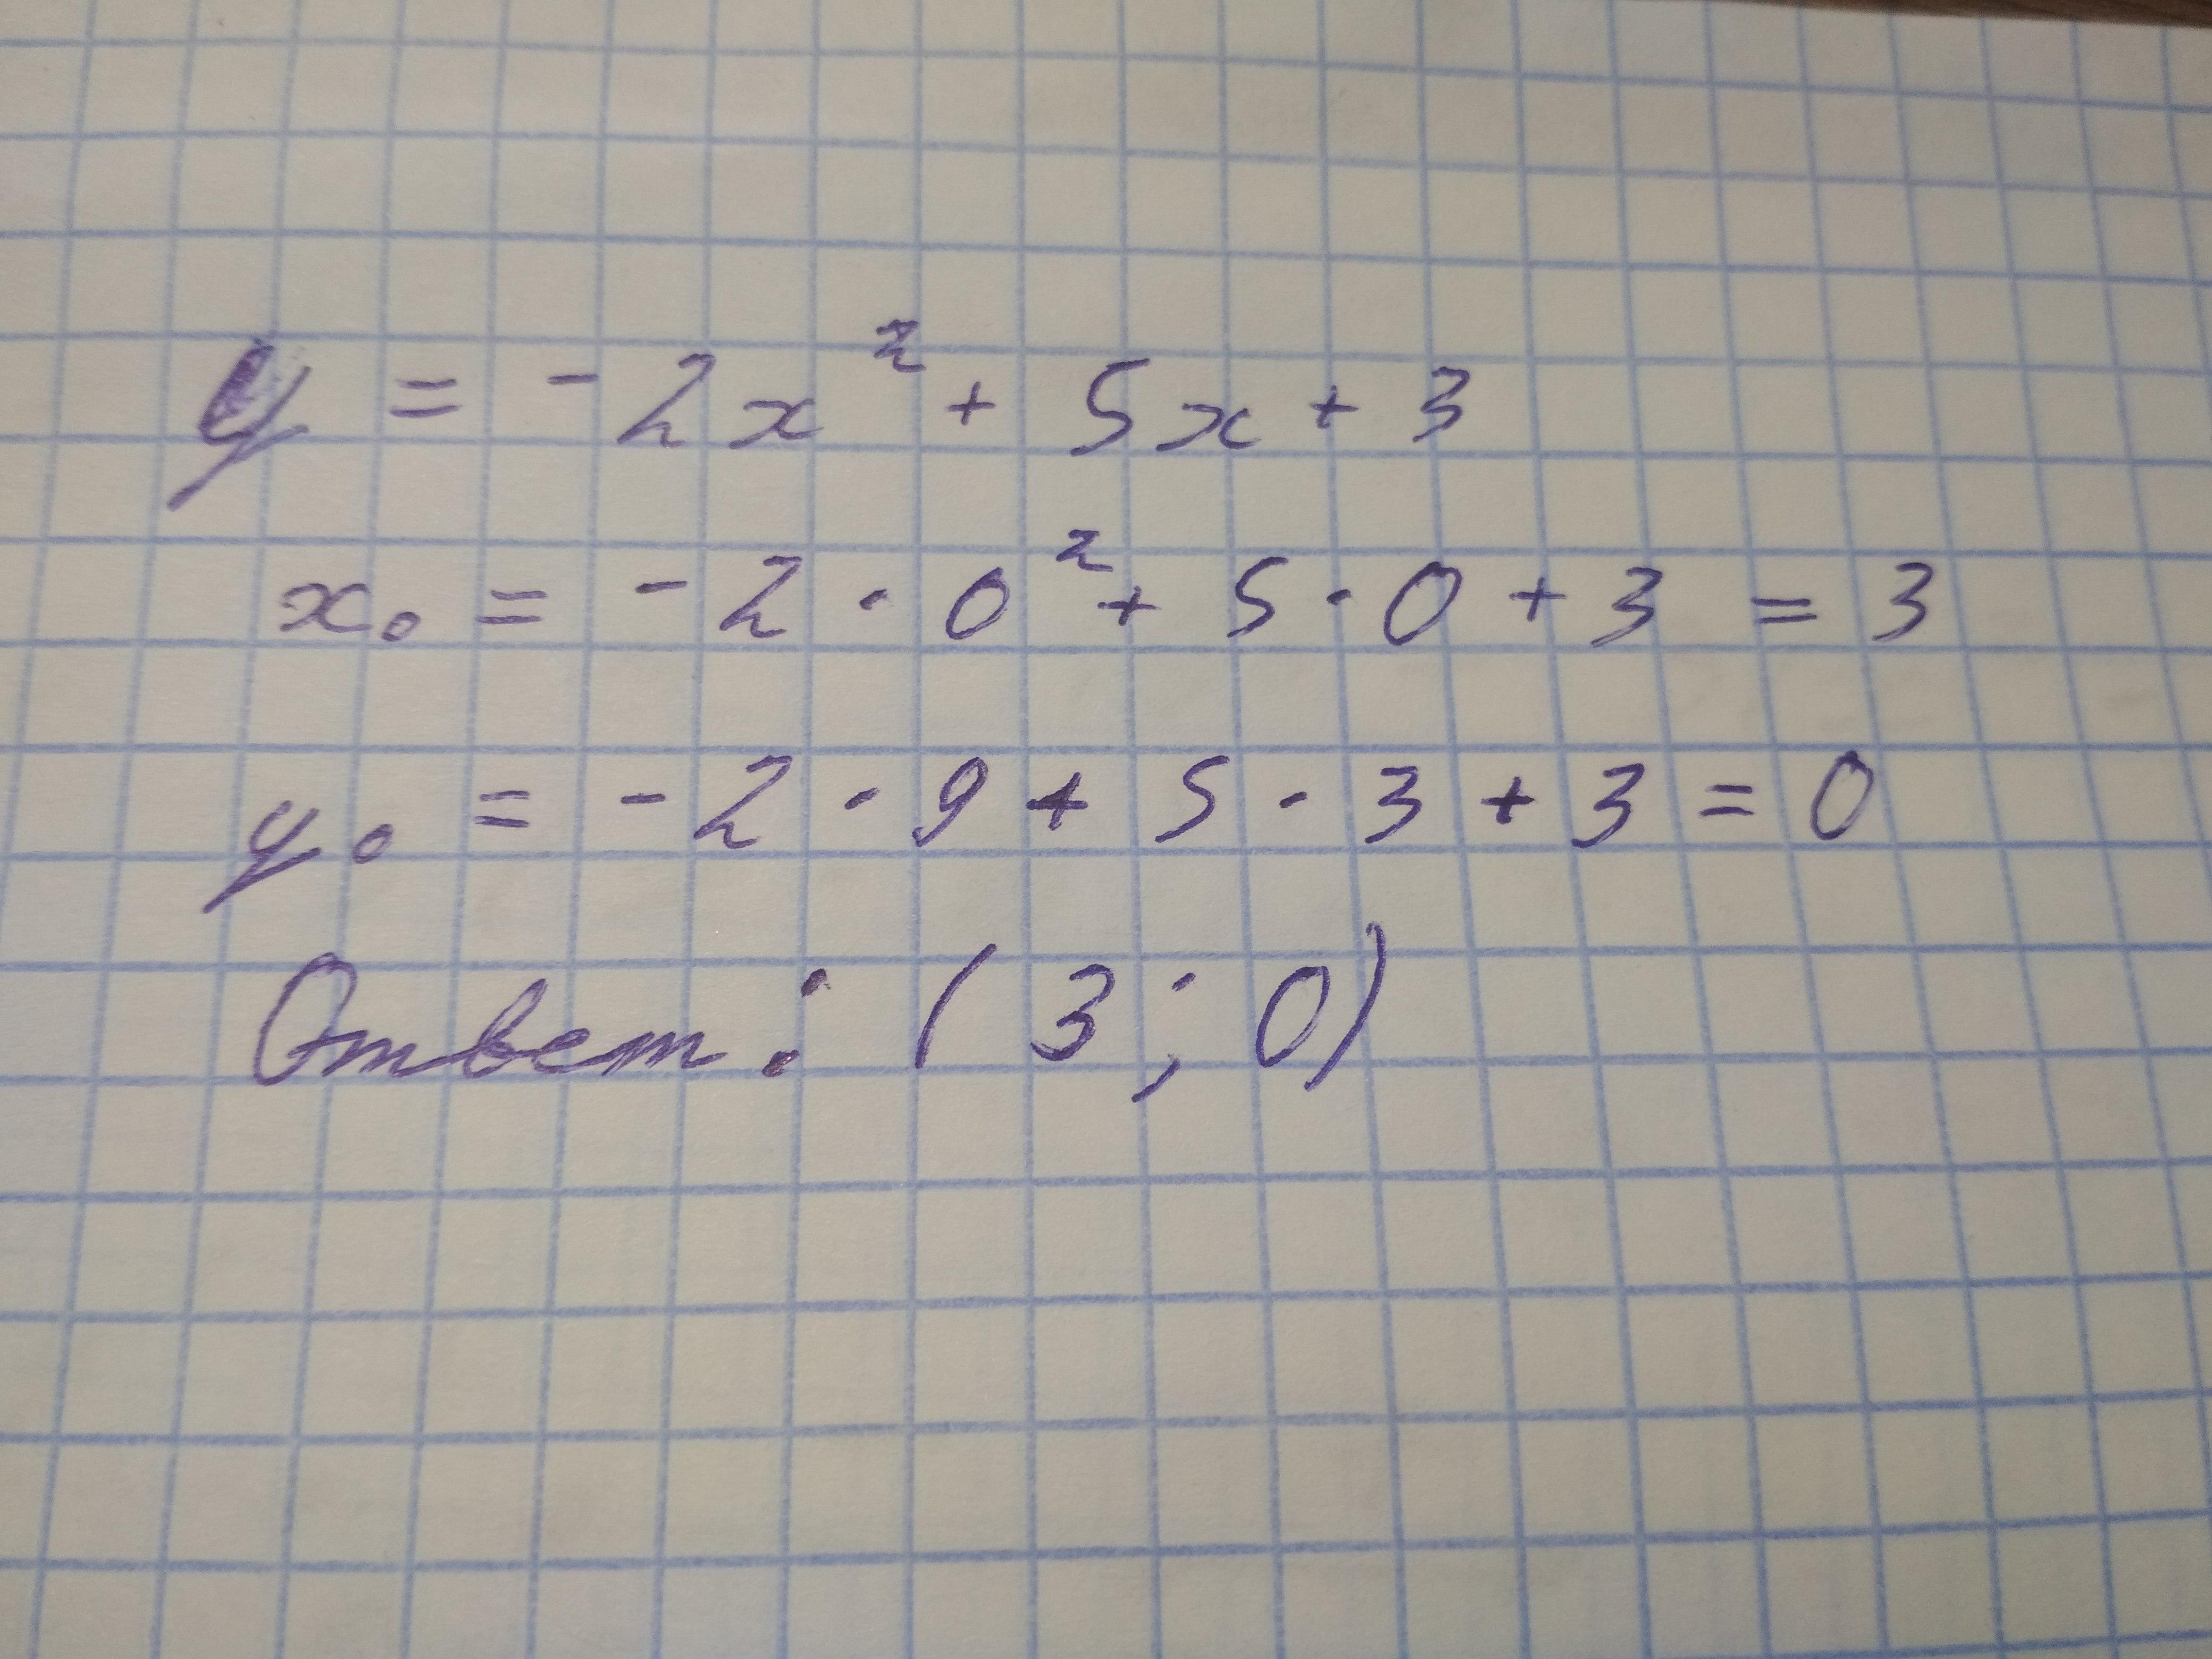 y = -2x² + 5x + 3
x₀ = -2 · 0² + 5 · 0 + 3 = 3
y₀ = -2 · 9 + 5 · 3 + 3 = 0
Ответ: (3; 0)